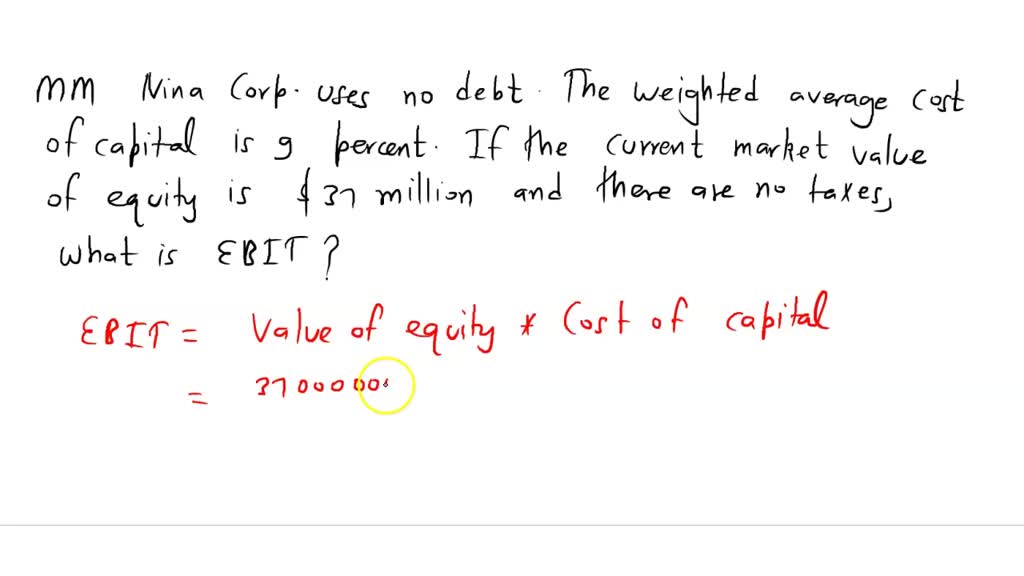 MM Nina Corp. uses no debt. The weighted average cost
of capital is 9 percent. If the current market value
of equity is $37 million and there are no taxes,
what is EBIT?
EBIT = Value of equity * Cost of capital
= 37000000